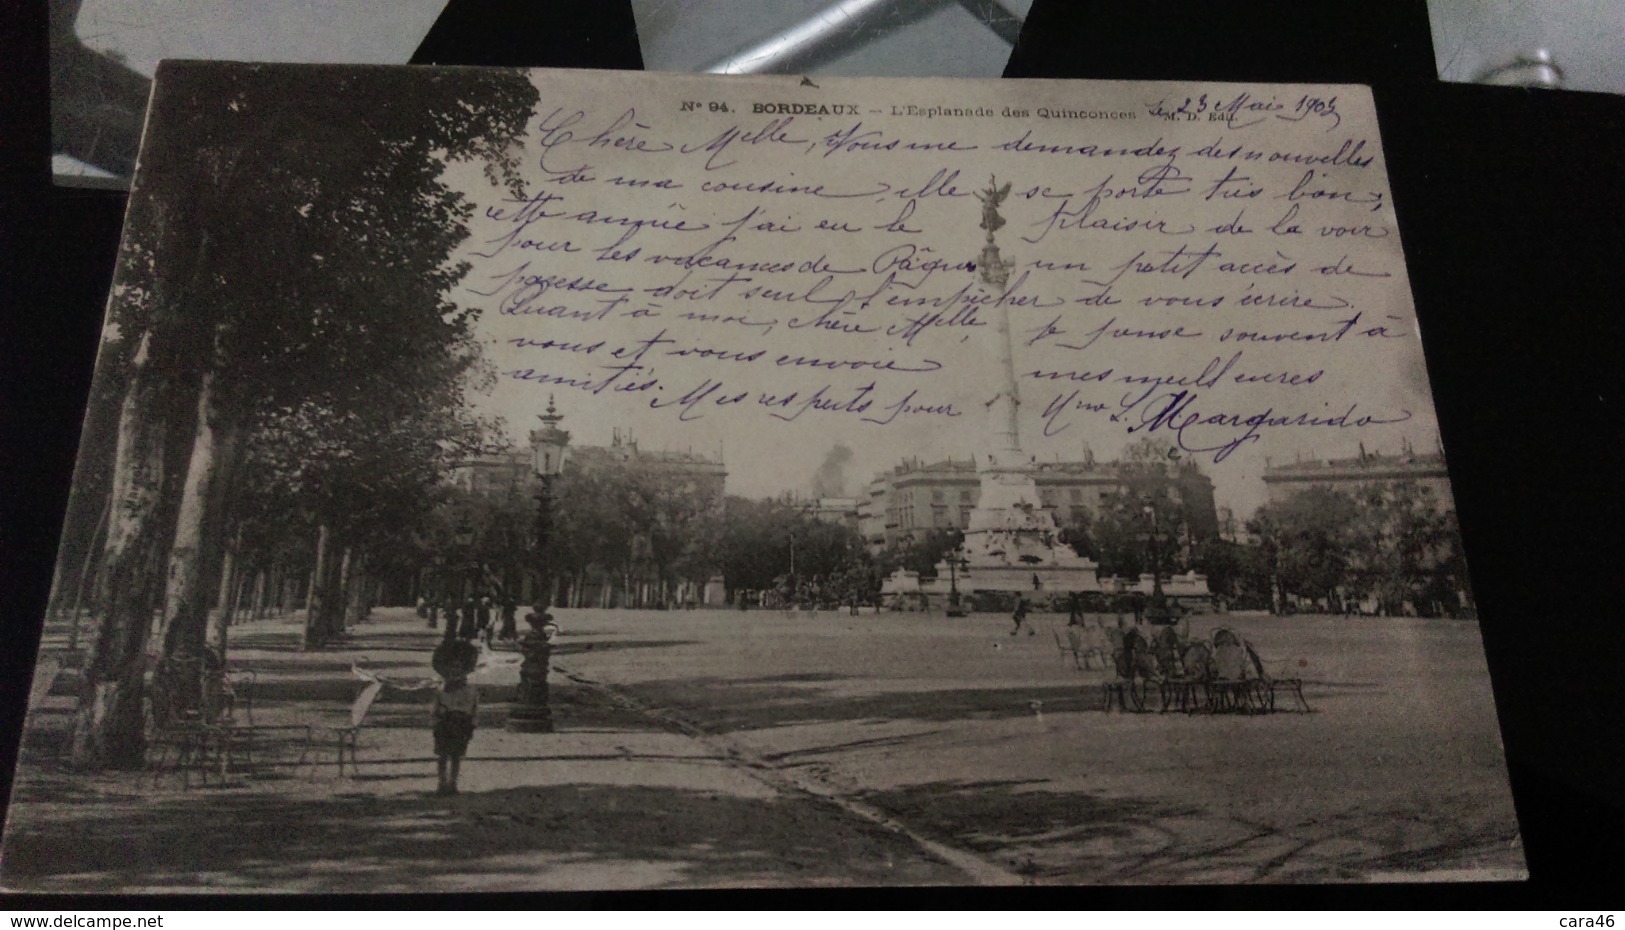 N° 94. BORDEAUX — L'Esplanade des Quinconces M. D. Edit.
Le 23 Mai 1903
Chère Melle, Vous me demandez des nouvelles
de ma cousine, elle se porte très bien,
cette année j'ai eu le plaisir de la voir
pour les vacances de Pâques un petit accès de
paresse doit seul l'empêcher de vous écrire.
Quant à moi, chère Melle, je pense souvent à
vous et vous envoie mes meilleures
amitiés. Mes respects pour Mme L. Margarido
www.delcampe.net
cara46